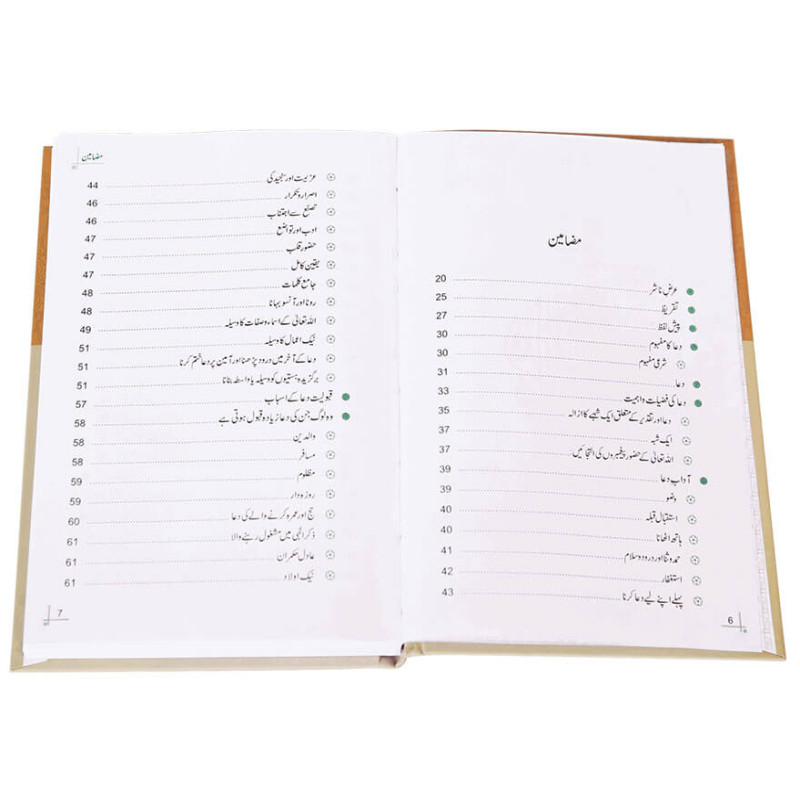 مضامین
عرض ناشر 20
تقریظ 25
پیش لفظ 27
دعا کا مفہوم 30
شرعی مفہوم 30
دعا 31
دعا کی فضیلت و اہمیت 33
دعا اور تقدیر کے متعلق ایک شبہے کا ازالہ 35
ایک شبہ 37
اللہ تعالیٰ کے حضور پیغمبروں کی التجائیں 37
آداب دعا 39
وضو 39
استقبال قبلہ 40
ہاتھ اٹھانا 40
حمد و ثنا اور درود و سلام 41
استغفار 42
پہلے اپنے لیے دعا کرنا 43
6
مضامین
عزیمت اور سنجیدگی 44
اصرار و تکرار 46
تصنع سے اجتناب 46
ادب اور تواضع 47
حضور قلب 47
یقین کامل 47
جامع کلمات 48
رونا اور آنسو بہانا 48
اللہ تعالیٰ کے اسماء و صفات کا وسیلہ 49
نیک اعمال کا وسیلہ 51
دعا کے آخر میں درود پڑھنا اور آمین پر دعا ختم کرنا 51
برگزیدہ ہستیوں کو وسیلہ یا واسطہ بنانا 51
قبولیت دعا کے اسباب 57
وہ لوگ جن کی دعا زیادہ قبول ہوتی ہے 58
والدین 58
مسافر 58
مظلوم 59
روزہ دار 59
حج اور عمرہ کرنے والے کی دعا 60
ذکر الٰہی میں مشغول رہنے والا 61
عادل حکمران 61
نیک اولاد 61
7